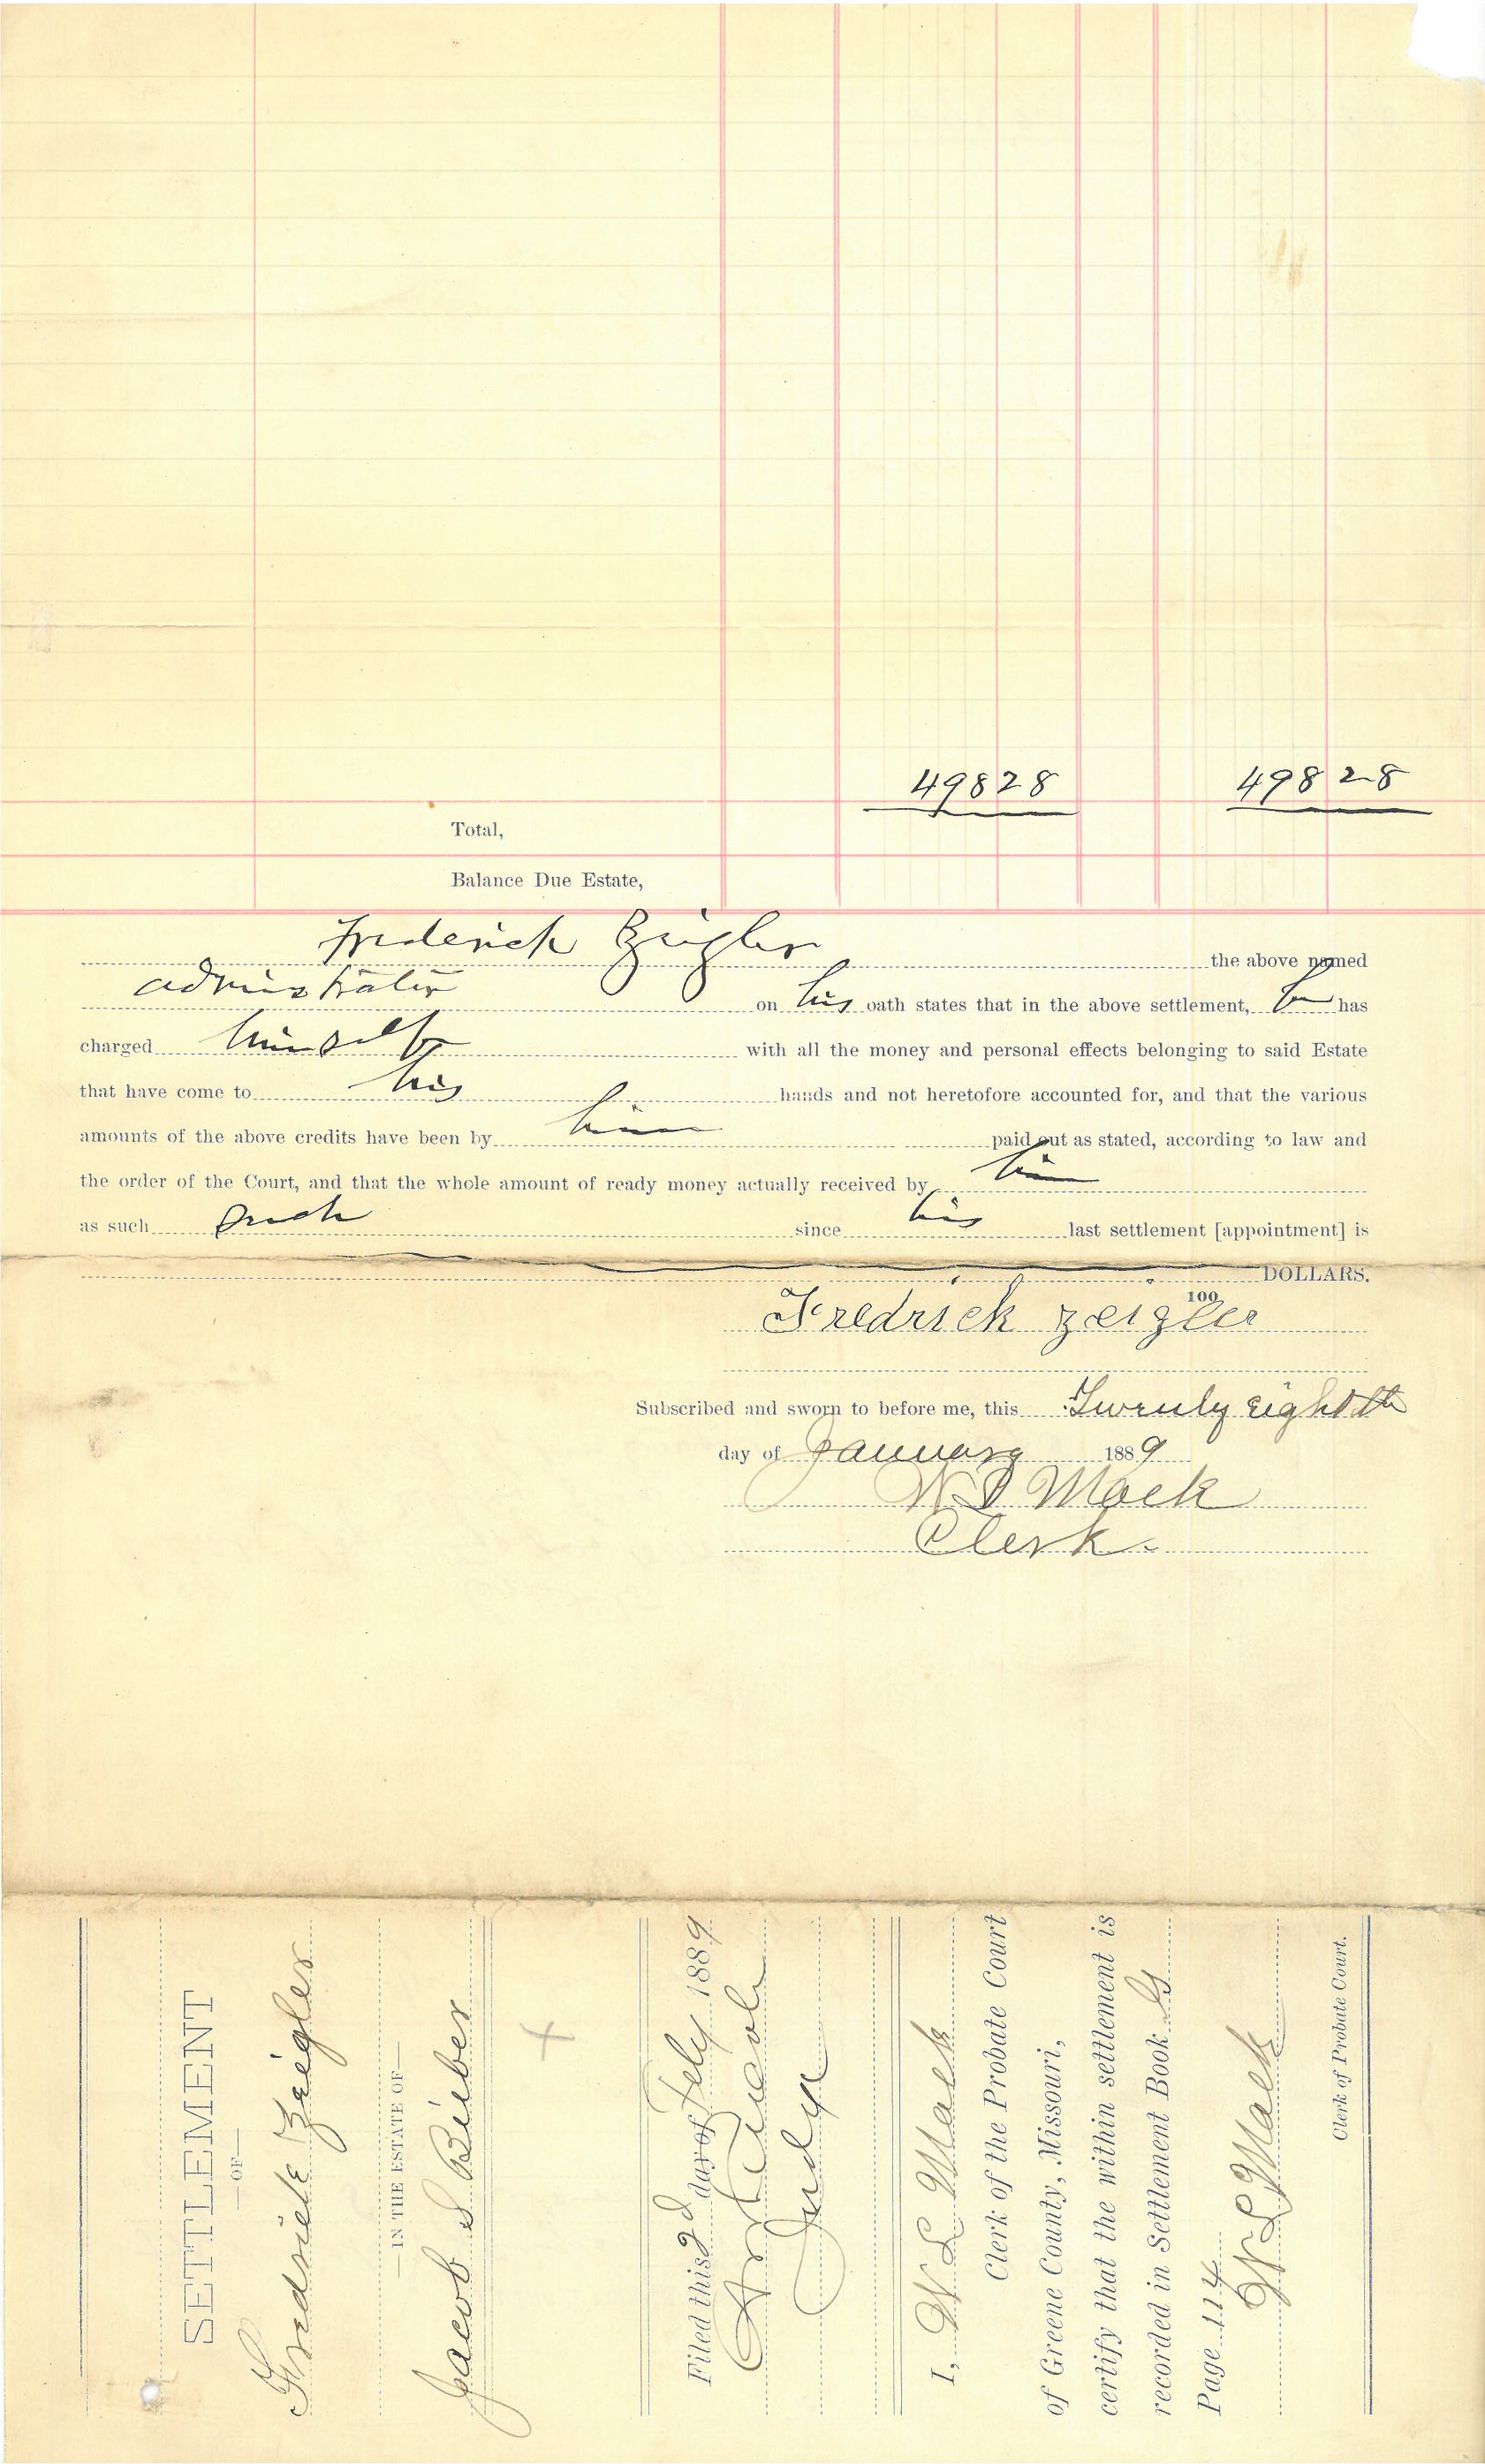 49828 49828
Total,
Balance Due Estate,
Frederick Zeigler the above named
administrator on his oath states that in the above settlement, he has
charged himself with all the money and personal effects belonging to said Estate
that have come to his hands and not heretofore accounted for, and that the various
amounts of the above credits have been by him paid out as stated, according to law and
the order of the Court, and that the whole amount of ready money actually received by him
as such since his last settlement [appointment] is
DOLLARS.
100
Fredrick Zeigler
Subscribed and sworn to before me, this Twenty eighth
day of January 1889
W L Mack
Clerk.
SETTLEMENT
—OF—
Fredrick Zeigler
—IN THE ESTATE OF—
Jacob S Bieber
X
Filed this 2d day of Feby 1889
Judge
I, W L Mack
Clerk of the Probate Court
of Greene County, Missouri,
certify that the within settlement is
recorded in Settlement Book
Page 114
W L Mack
Clerk of Probate Court.